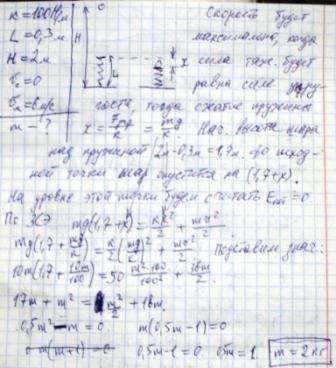 к = 100 Н/м
L = 0,3 м
H = 2 м
v₀ = 0
vₘ = 6 м/с
m - ?
H
0
L
x
Скорость будет
максимальна, когда
сила тяж. будет
равна силе упру-
гости, тогда сжатие пружины
x = Fупр/к = mg/к Нач. высота шара
над пружиной 2м - 0,3м = 1,7м. до
ной точки шар опустится на (1,7+x).
На уровне этой точки будем считать Eп = 0
По ЗСЭ mg(1,7+x) = кx²/2 + mv²/2
mg(1,7 + mg/к) = к/2 (mg/к)² + mv²/2 Подставим знач:
10m(1,7 + 10m/100) = 50 m²·100/100² + 36m/2
17m + m² = m²/2 + 18m.
0,5m² - m = 0. m(0,5m-1) = 0
0,5m-1 = 0 0,5m = 1 m = 2 кг